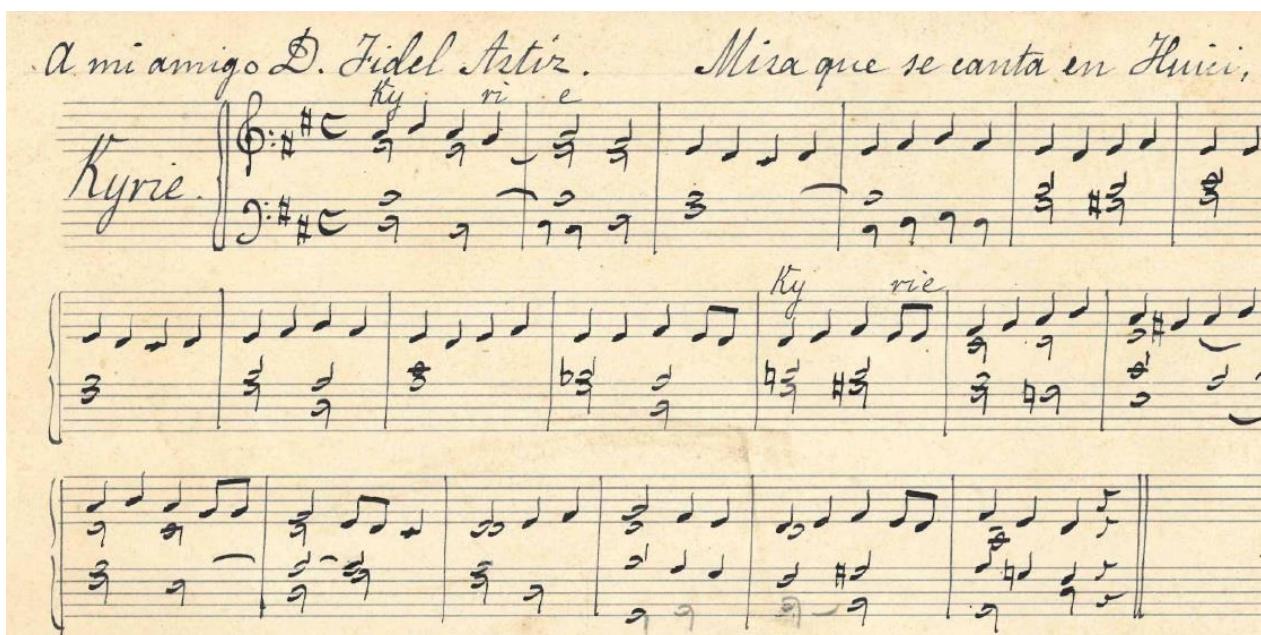 A mi amigo D. Fidel Astiz. Misa que se canta en Huici,
Ky ri e
Kyrie.
Ky rie